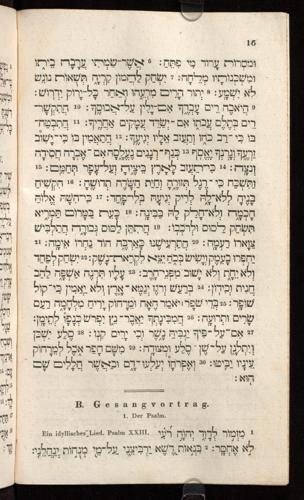 16
ומסרות ערוד מי פתח׃ 6 אשר־שמתי ערבה ביתו
ומשכנותיו מלחה׃ 7 ישחק להמון קריה תשאות נוגש
לא ישמע׃ 8 יתור הרים מרעהו ואחר כל־ירוק ידרוש׃
9 היאבה רים עבדך אם־ילין על־אבוסך׃ 10 התקשר־
רים בתלם עבתו אם־ישדד עמקים אחריך׃ 11 התבטח־
בו כי־רב כחו ותעזב אליו יגיעך׃ 12 התאמין בו כי־ישוב
זרעך וגרנך יאסף׃ 13 כנף־רננים נעלסה אם־אברה חסידה
ונצה׃ 14 כי־תעזב לארץ ביציה ועל־עפר תחמם׃ 15
ותשכח כי־רגל תזורה וחית השדה תדושה׃ 16 הקשיח
בניה ללא־לה לריק יגיעה בלי־פחד׃ 17 כי־השה אלוה
חכמה ולא־חלק לה בבינה׃ 18 כעת במרום תמריא
תשחק לסוס ולרכבו׃ 19 התתן לסוס גבורה התלביש
צוארו רעמה׃ 20 התרעישנו כארבה הוד נחרו אימה׃ 21
יחפרו בעמק וישיש בכח יצא לקראת־נשק׃ 22 ישחק לפחד
ולא יחת ולא ישוב מפני־חרב׃ 23 עליו תרנה אשפה להב
חנית וכידון׃ 24 ברעש ורגז יגמא־ארץ ולא יאמין כי־קול
שופר׃ 25 בדי שפר יאמר האח ומרחוק יריח מלחמה רעם
שרים ותרועה׃ 26 המבינתך יאבר־נץ יפרש כנפו לתימן׃
27 אם־על־פיך יגביה נשר וכי ירים קנו׃ 28 סלע ישכן
ויתלנן על־שן־סלע ומצודה׃ 29 משם חפר אכל למרחוק
עיניו יביטו׃ 30 ואפרחו יעלעו־דם ובאשר חללים שם
הוא׃
B. Gesangvortrag.
1. Der Psalm.
Ein idyllisches Lied. Psalm XXIII. 1 מזמור לדוד יהוה רעי
לא אחסר׃ 2 בנאות דשא ירביצני על־מי מנחות ינהלני׃